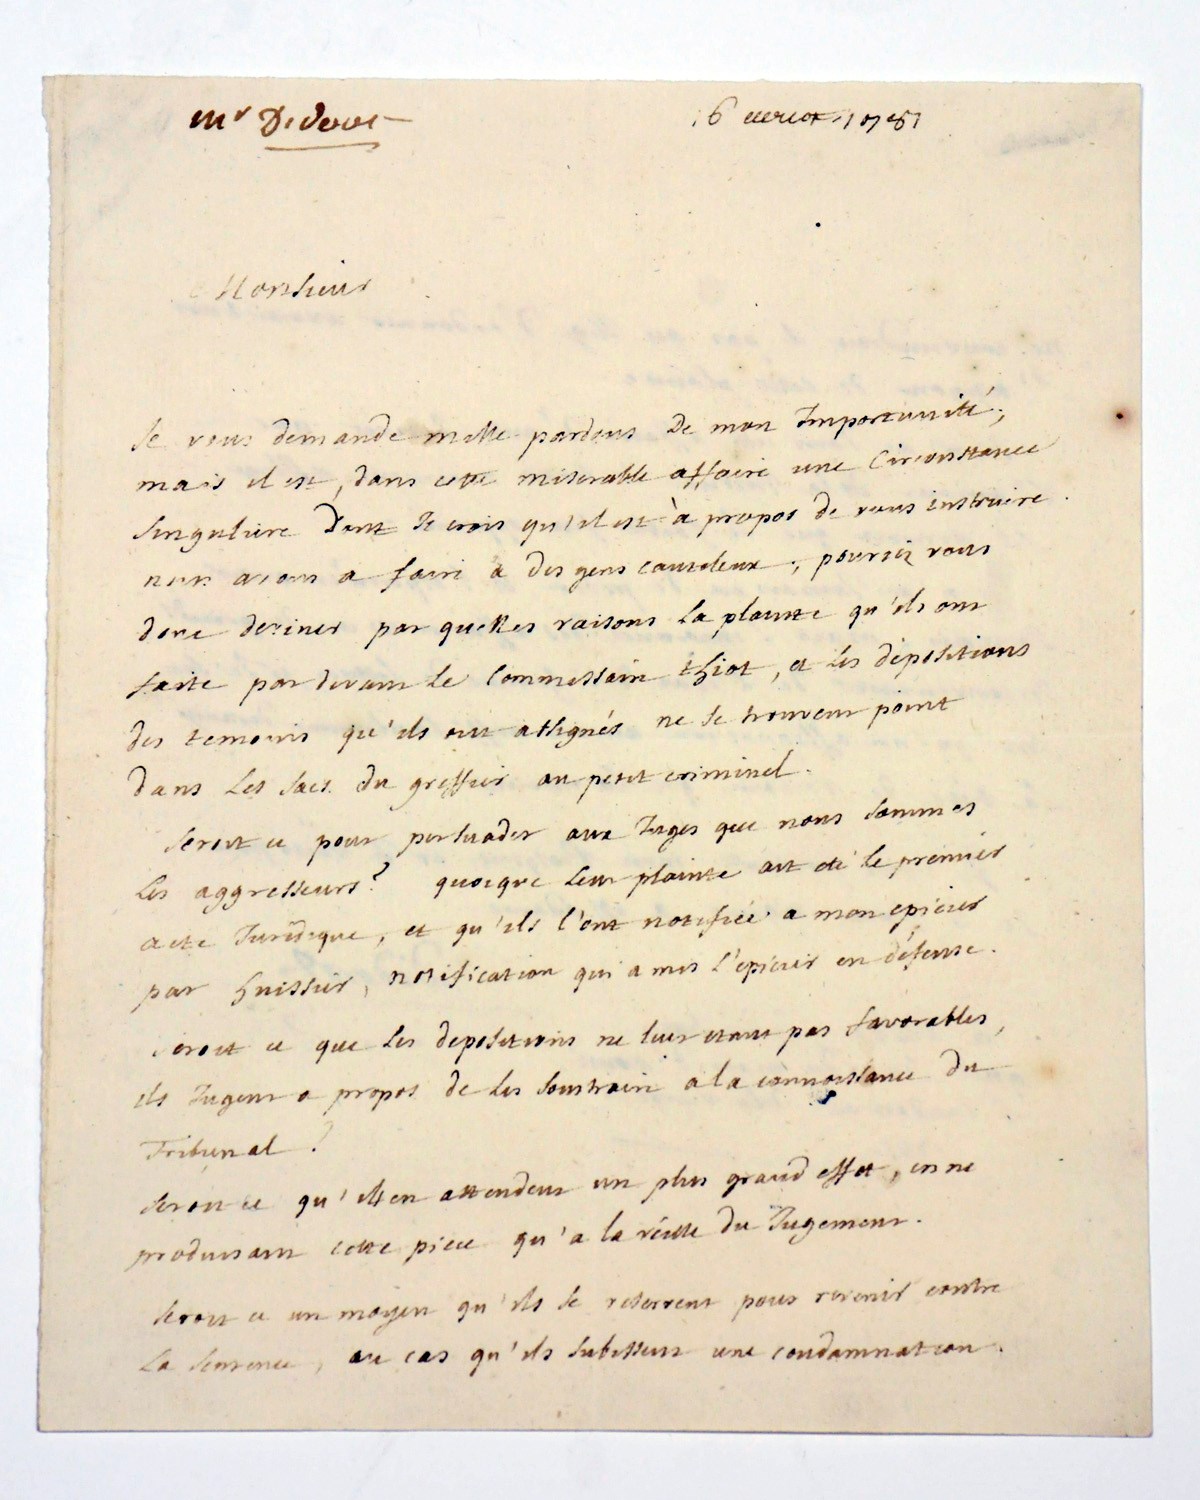 Mr Diderot
16 avril 1781
Monsieur
Je vous demande mille pardons de mon Importunité;
mais il est, dans cette miserable affaire une Circonstance
singuliere dont Je crois qu'il est à propos de vous instruire.
nous avons a faire à des gens cauteleux; pouriez vous
donc deviner par quelles raisons la plainte qu'ils ont
faite par devant Le Commissaire thiot, et les dépositions
des temoins qu'ils ont assignés ne se trouvent point
dans les sacs du greffier au petit criminel.
seroit ce pour persuader aux Juges que nous sommes
les aggresseurs? quoique leur plainte ait eté le premier
acte Juridique, et qu'ils l'ont notifiée a mon epicier
par huissier, notification qui a mis l'epicier en défense.
seroit ce que les depositions ne leur etant pas favorables,
ils Jugent a propos de les soustraire a la connoissance du
Tribunal?
seroit ce qu'ils en attendent un plus grand effet, en ne
produisant cette piece qu'a la veille du Jugement.
seroit ce un moyen qu'ils se reservent pour revenir contre
la sentence, au cas qu'ils subissent une condamnation.